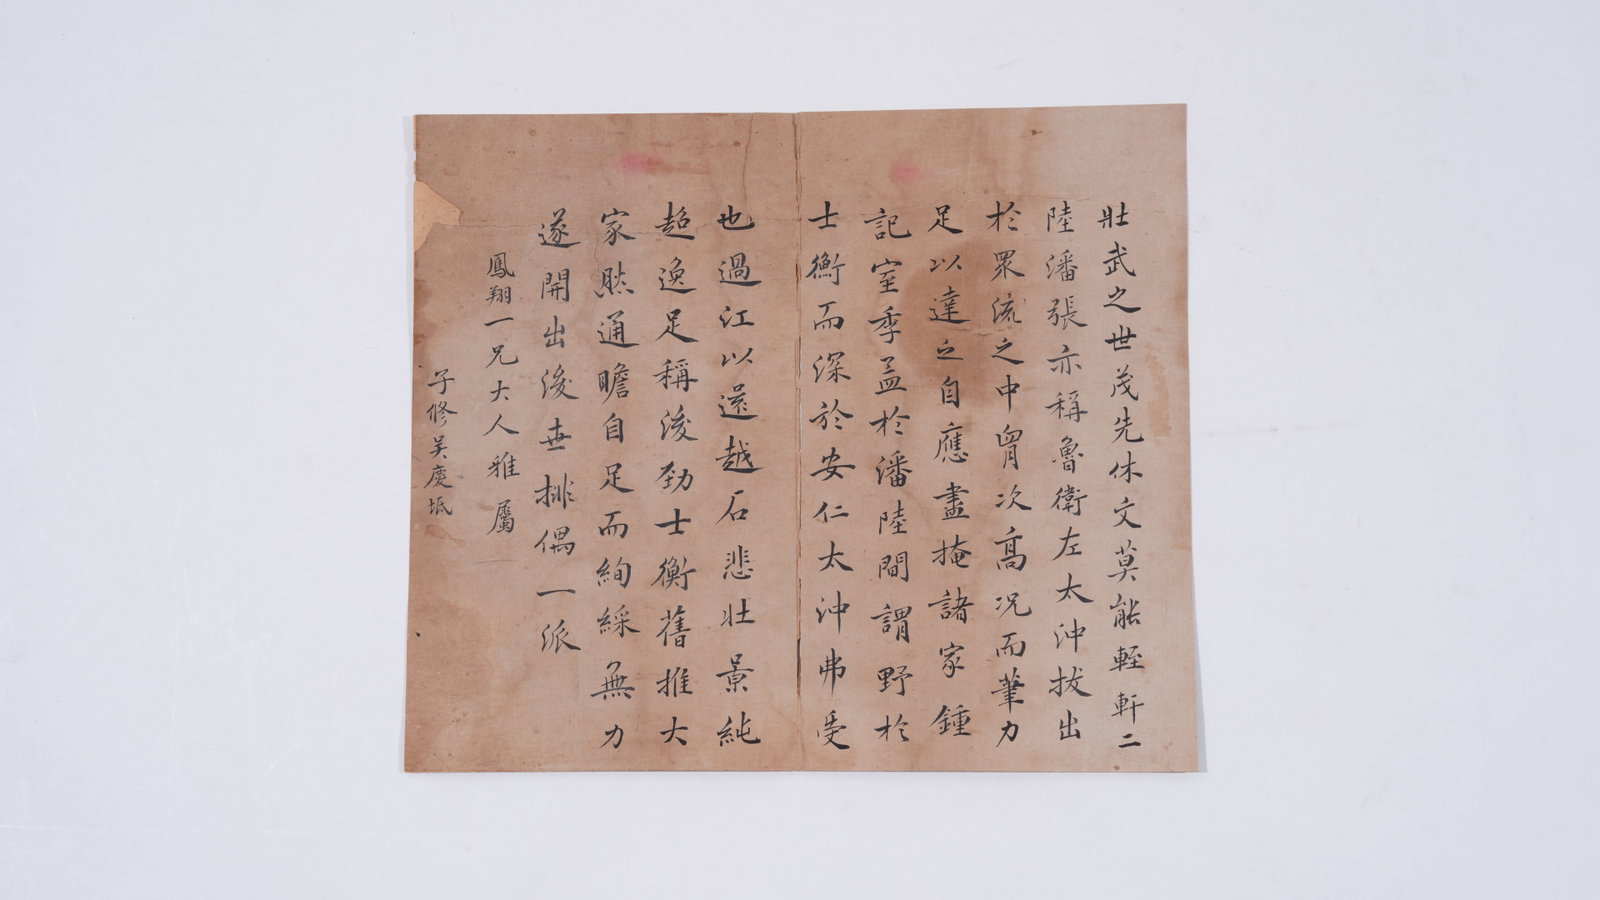 壯武之世茂先休文莫能軽軒二
陸潘張亦稱魯衛左太沖拔出
於眾流之中胷次高况而筆力
足以達之自應盡掩諸家鍾
記室季孟於潘陸間謂野於
士衡而深於安仁太沖弗受
也過江以還越石悲壯景純
超逸足稱後勁士衡舊推大
家然通瞻自足而絢綵無力
遂開出後世排偶一派
鳳翔一兄大人雅屬
子修吴慶坻